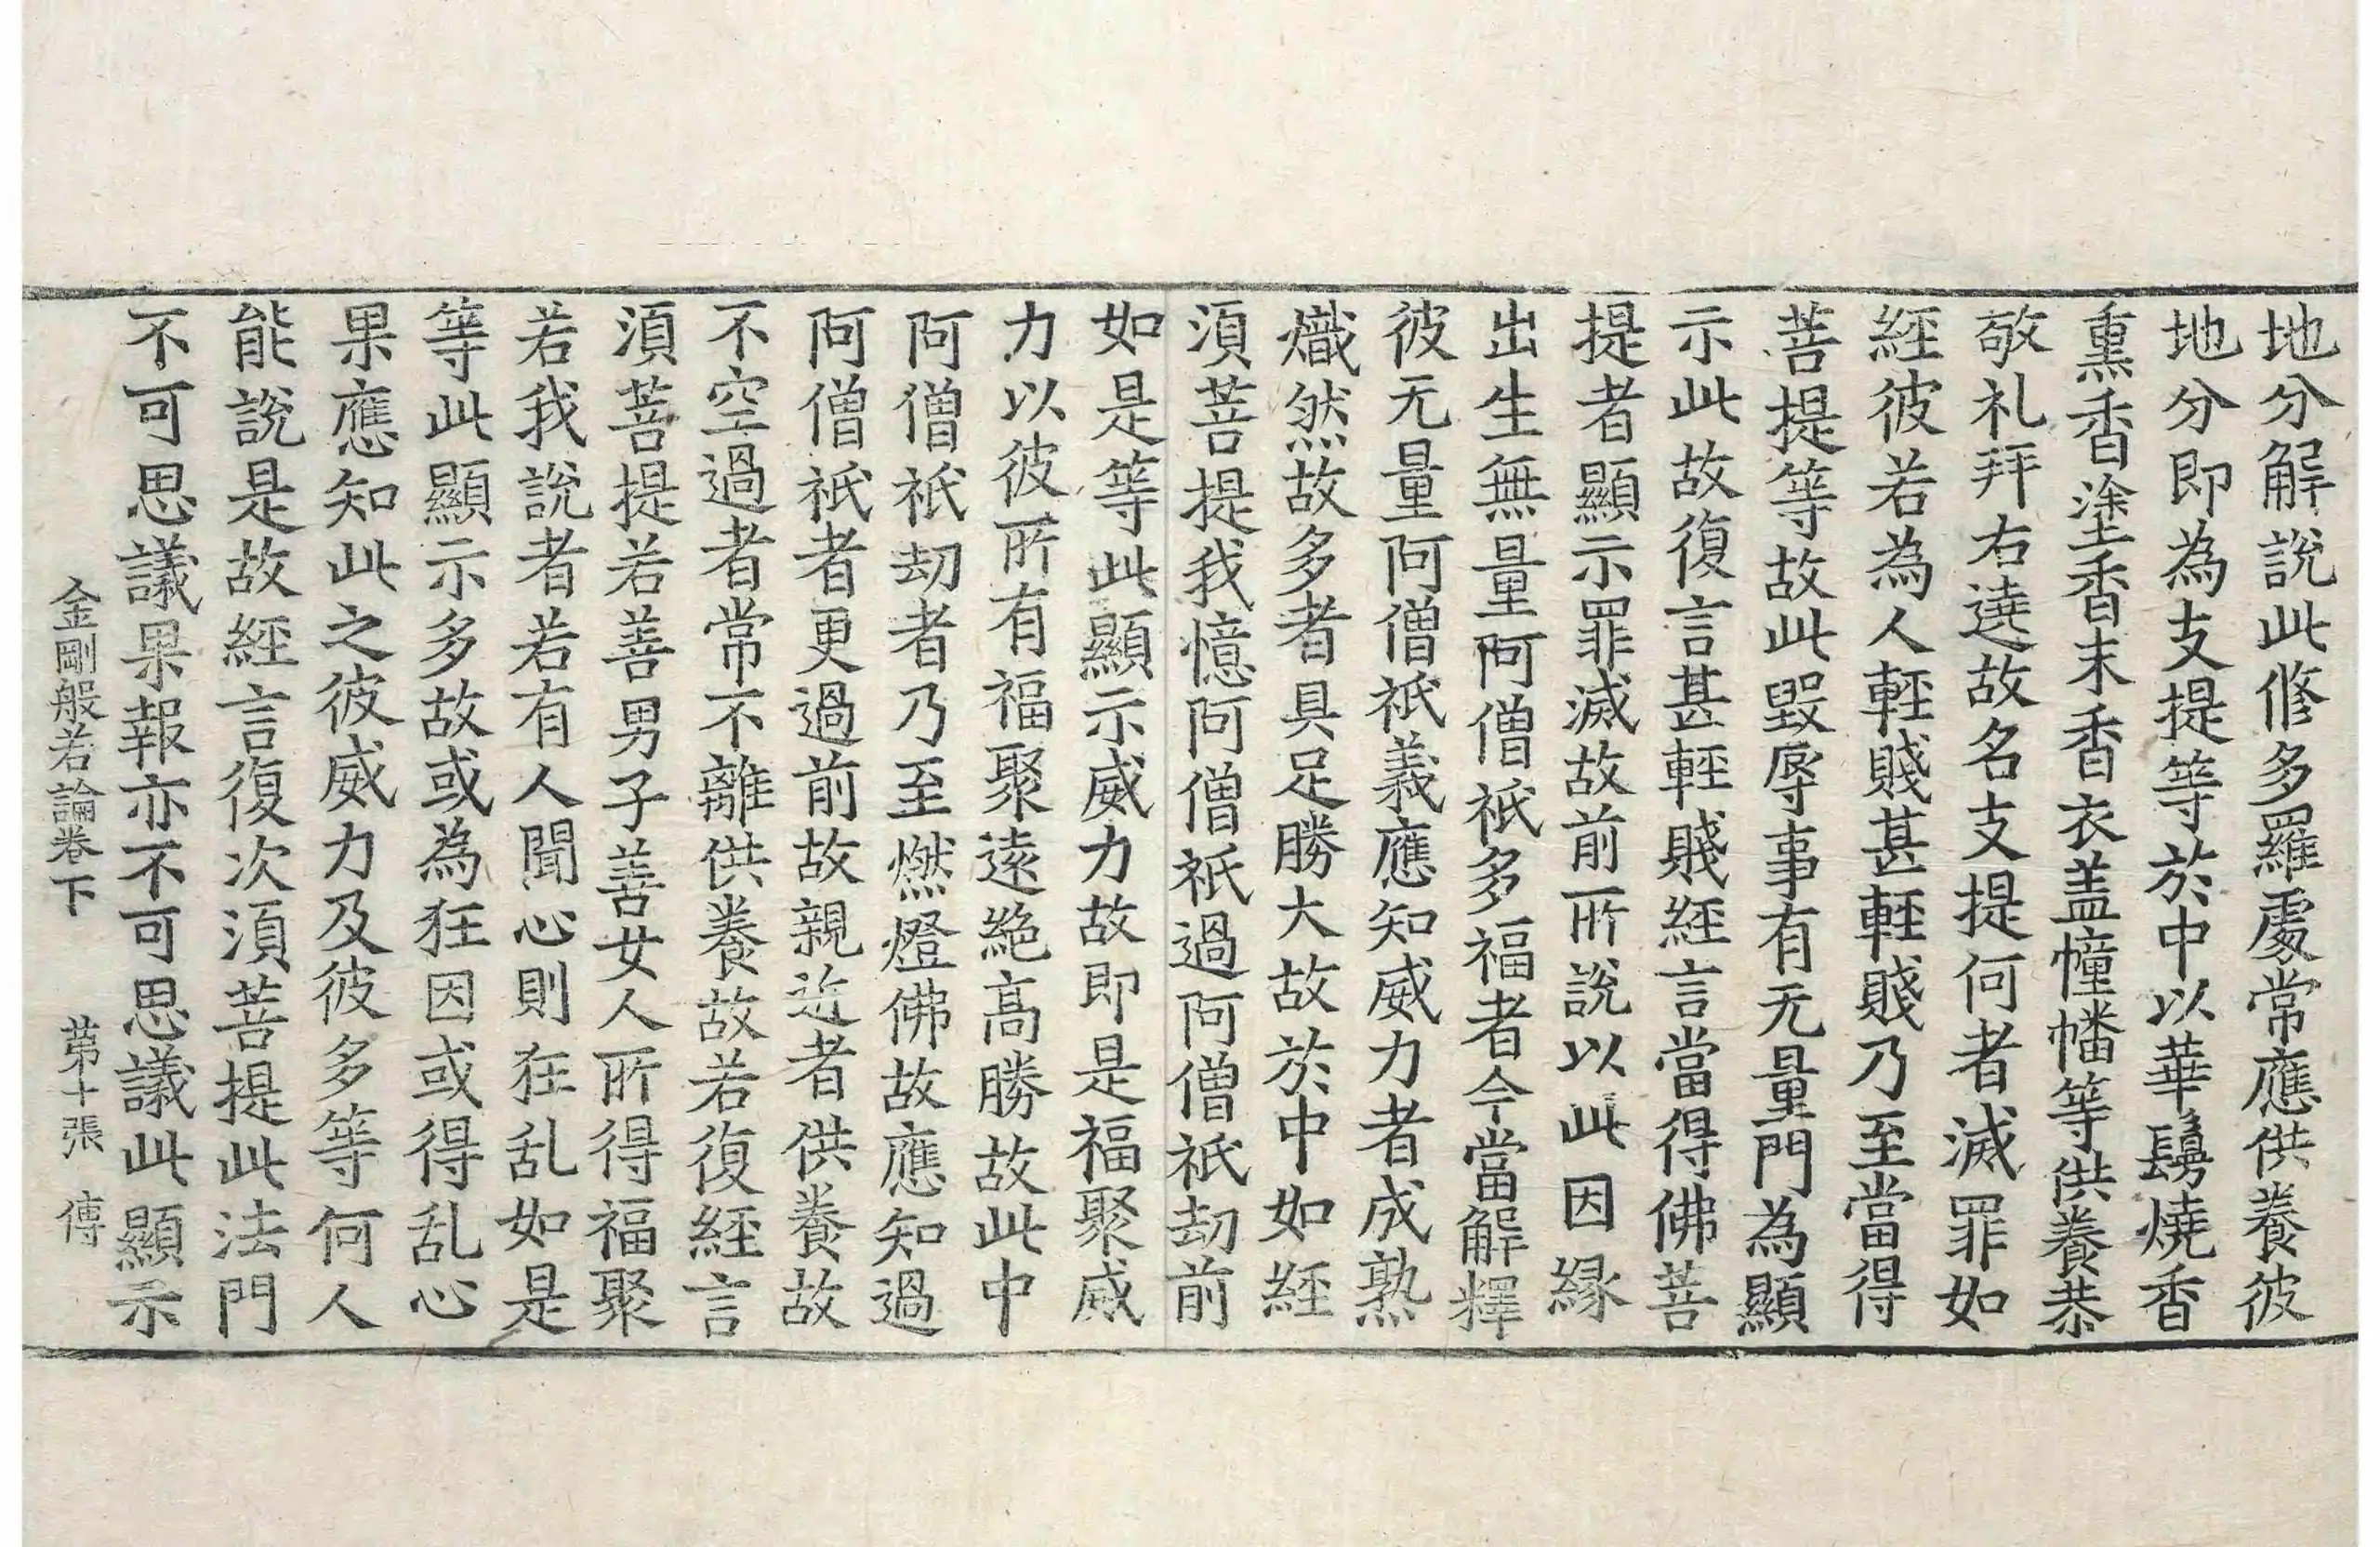 地分解說此修多羅處常應供養彼
地分即為支提等於中以華鬘燒香
熏香塗香末香衣盖幢幡等供養恭
敬礼拜右遶故名支提何者滅罪如
經彼若為人輕賤甚輕賤乃至當得
菩提等故此毀辱事有无量門為顯
示此故復言甚輕賤經言當得佛菩
提者顯示罪滅故前所說以此因緣
出生無量阿僧祇多福者今當解釋
彼无量阿僧祇義應知威力者成熟
熾然故多者具足勝大故於中如經
須菩提我憶阿僧祇過阿僧祇劫前
如是等此顯示威力故即是福聚威
力以彼所有福聚遠絕高勝故此中
阿僧祇劫者乃至燃燈佛故應知過
阿僧祇者更過前故親近者供養故
不空過者常不離供養故若復經言
須菩提若善男子善女人所得福聚
若我說者若有人聞心則狂乱如是
等此顯示多故或為狂因或得乱心
果應知此之彼威力及彼多等何人
能說是故經言復次須菩提此法門
不可思議果報亦不可思議此顯示
金剛般若論卷下 苐十張 傳